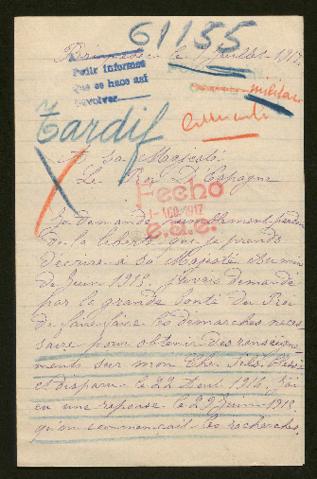 61155
le 1 Juillet 1917.
Pedir informes
Que se hace así
Devolver
militar
Tardif
A Sa Majesté
Le Roi D'Espagne
Fecho
1- AGO 1917
e.a.e.
Je demande humblement pardon
de la liberté que je prends
d'écrire à Sa Majesté
de Juin 1915. J'avais demandé
par la grande bonté du Roi
de faire faire les démarches néces
saire pour obtenir des renseigne
ments sur mon Cher fils. Blessé
et disparu le 22 1915. J'ai
eu une réponse le 29 Juin 1915.
qu'on commençait les recherches.